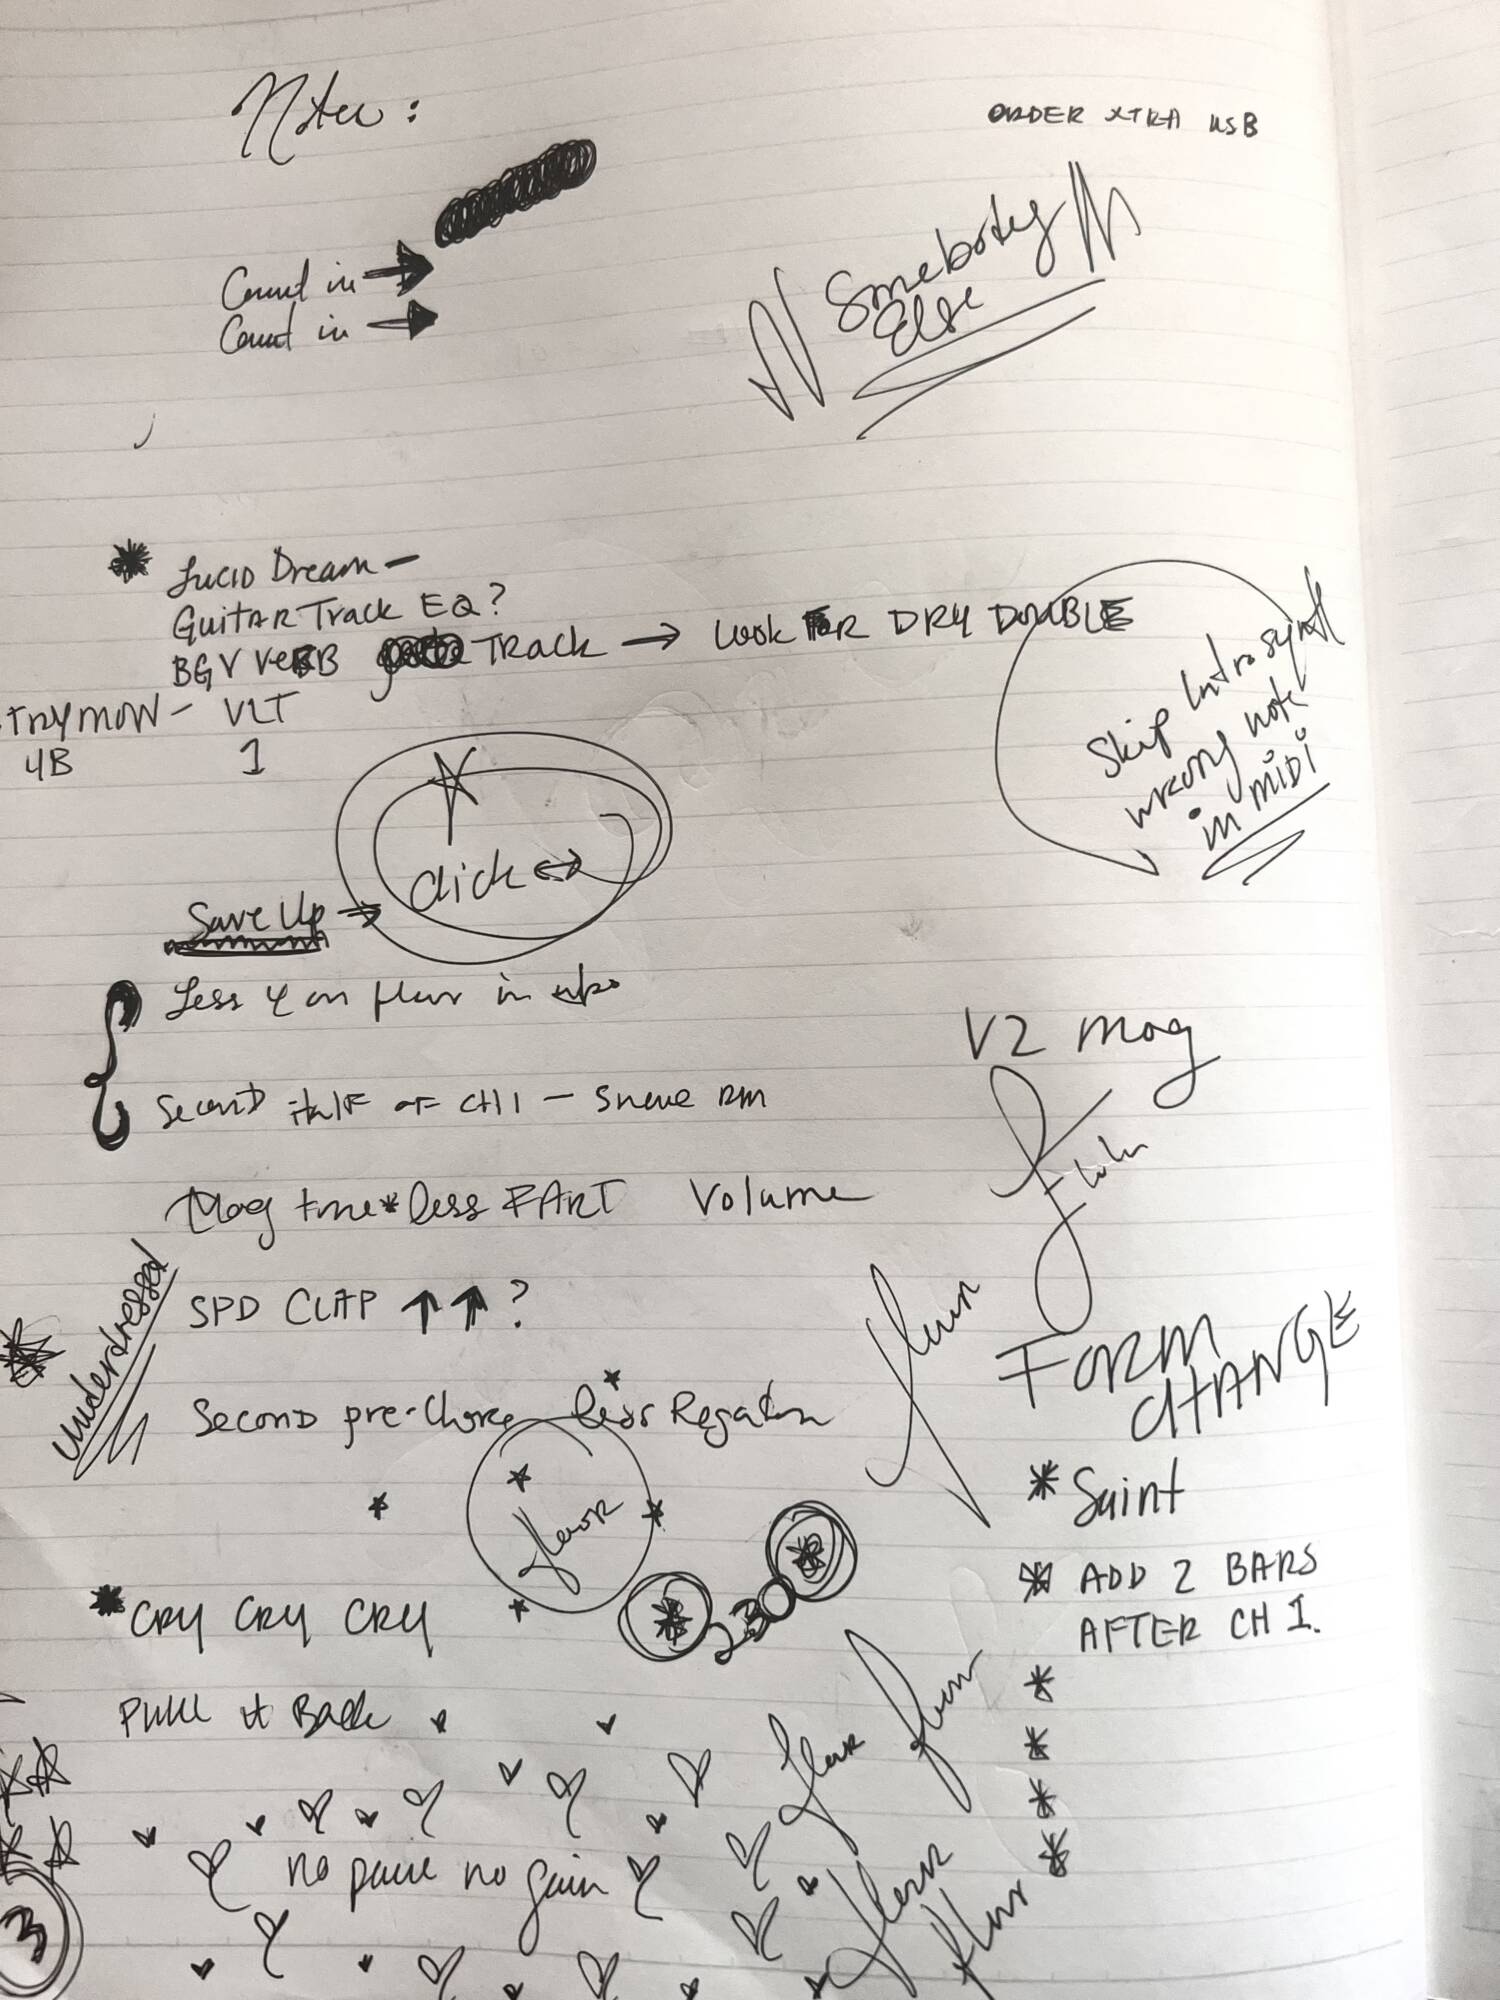 Notes:
ORDER XTRA USB
Count in →
Count in →
Somebody
Else
* Lucid Dream —
Guitar Track EQ?
BGV VERB TRack → Look FOR DRY DOUBLE
Skip Intro synth
wrong note
in MIDI
STRYMON — VLT
4B 1
Click ↔
Save Up →
Less 4 on floor in
Second Half of CH 1 — Snare RM
V2 Mog
Mog tone * less FART Volume
Underdressed
SPD CLAP ↑↑ ?
FORM
CHANGE
Second pre-chorus less Regaton
* Saint
* ADD 2 BARS
AFTER CH 1.
* CRY CRY CRY
230
PULL it Back
no pain no gain
3